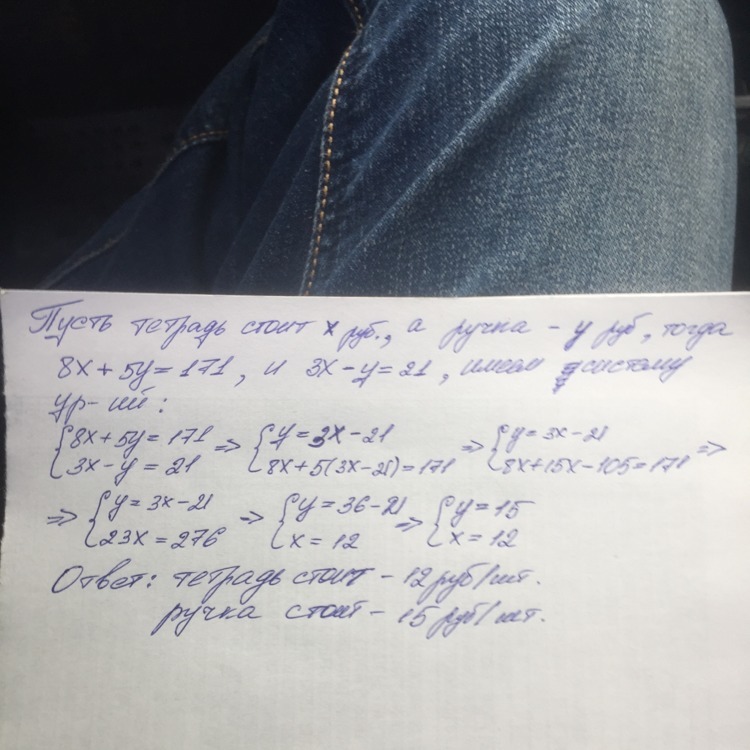 Пусть тетрадь стоит x руб., а ручка – y руб, тогда
8x + 5y = 171, и 3x – y = 21, имеем систему
ур-ий:
{8x + 5y = 171 => {y = 3x – 21 => {y = 3x – 21 =>
{3x – y = 21 {8x + 5(3x – 21) = 171 {8x + 15x – 105 = 171
=> {y = 3x – 21 => {y = 36 – 21 => {y = 15
{23x = 276 {x = 12 {x = 12
Ответ: тетрадь стоит – 12 руб/шт.
ручка стоит – 15 руб/шт.